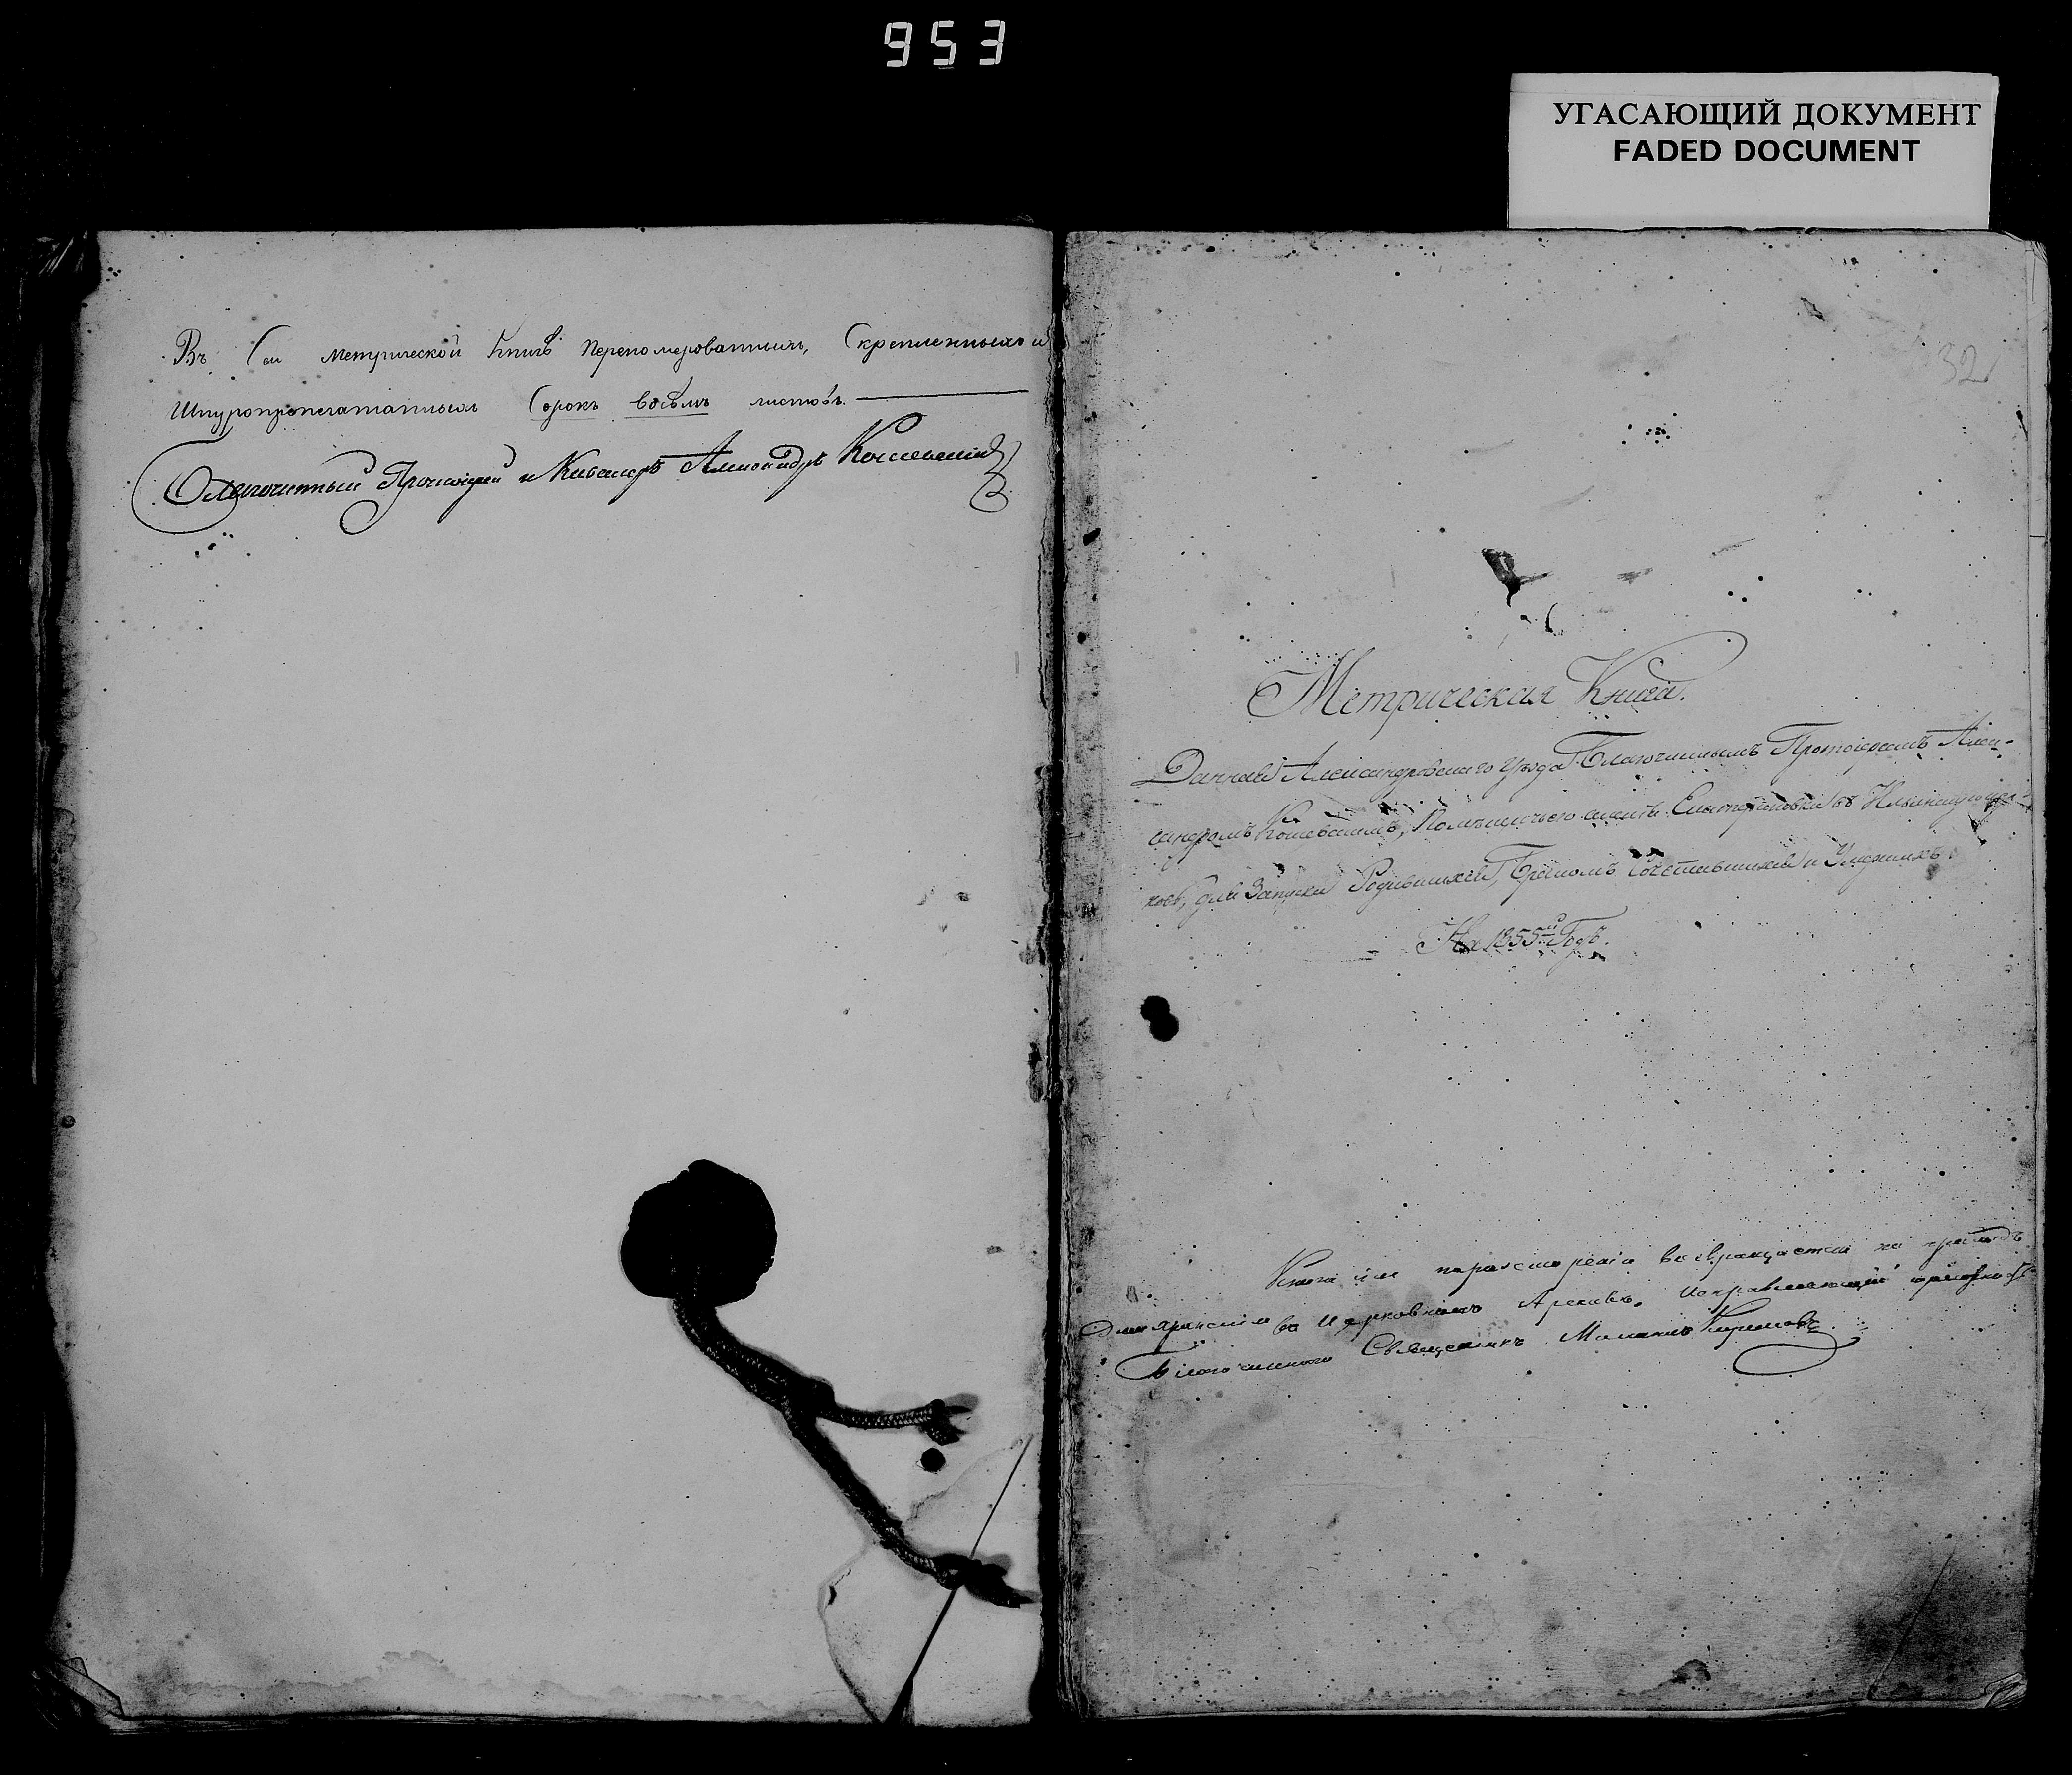 953
УГАСАЮЩИЙ ДОКУМЕНТ
FADED DOCUMENT
Въ Сей метрической книгѣ переномерованныхъ, Скрепленныхъ и
Шнуропропечатанныхъ Сорокъ восѣмъ листовъ.
Благочинный Протоиерей и Кавалеръ Александръ Кошевский
32
Метрическая Книга.
Данная Александровскаго уѣзда Благочиннымъ Протоіереемъ Алек-
сандромъ Кошевскимъ, Помѣщичьего имѣнія Екатериновки въ Ильинскую цер-
ковь, для Записки Родившихся, Бракомъ Сочетавшихся и Умершихъ.
На 1855й Годъ.
Книга сія по разсмотреніи возвращается на приходъ
для храненія въ Церковномъ Архивѣ. Исправляющій должность
Благочиннаго Священникъ